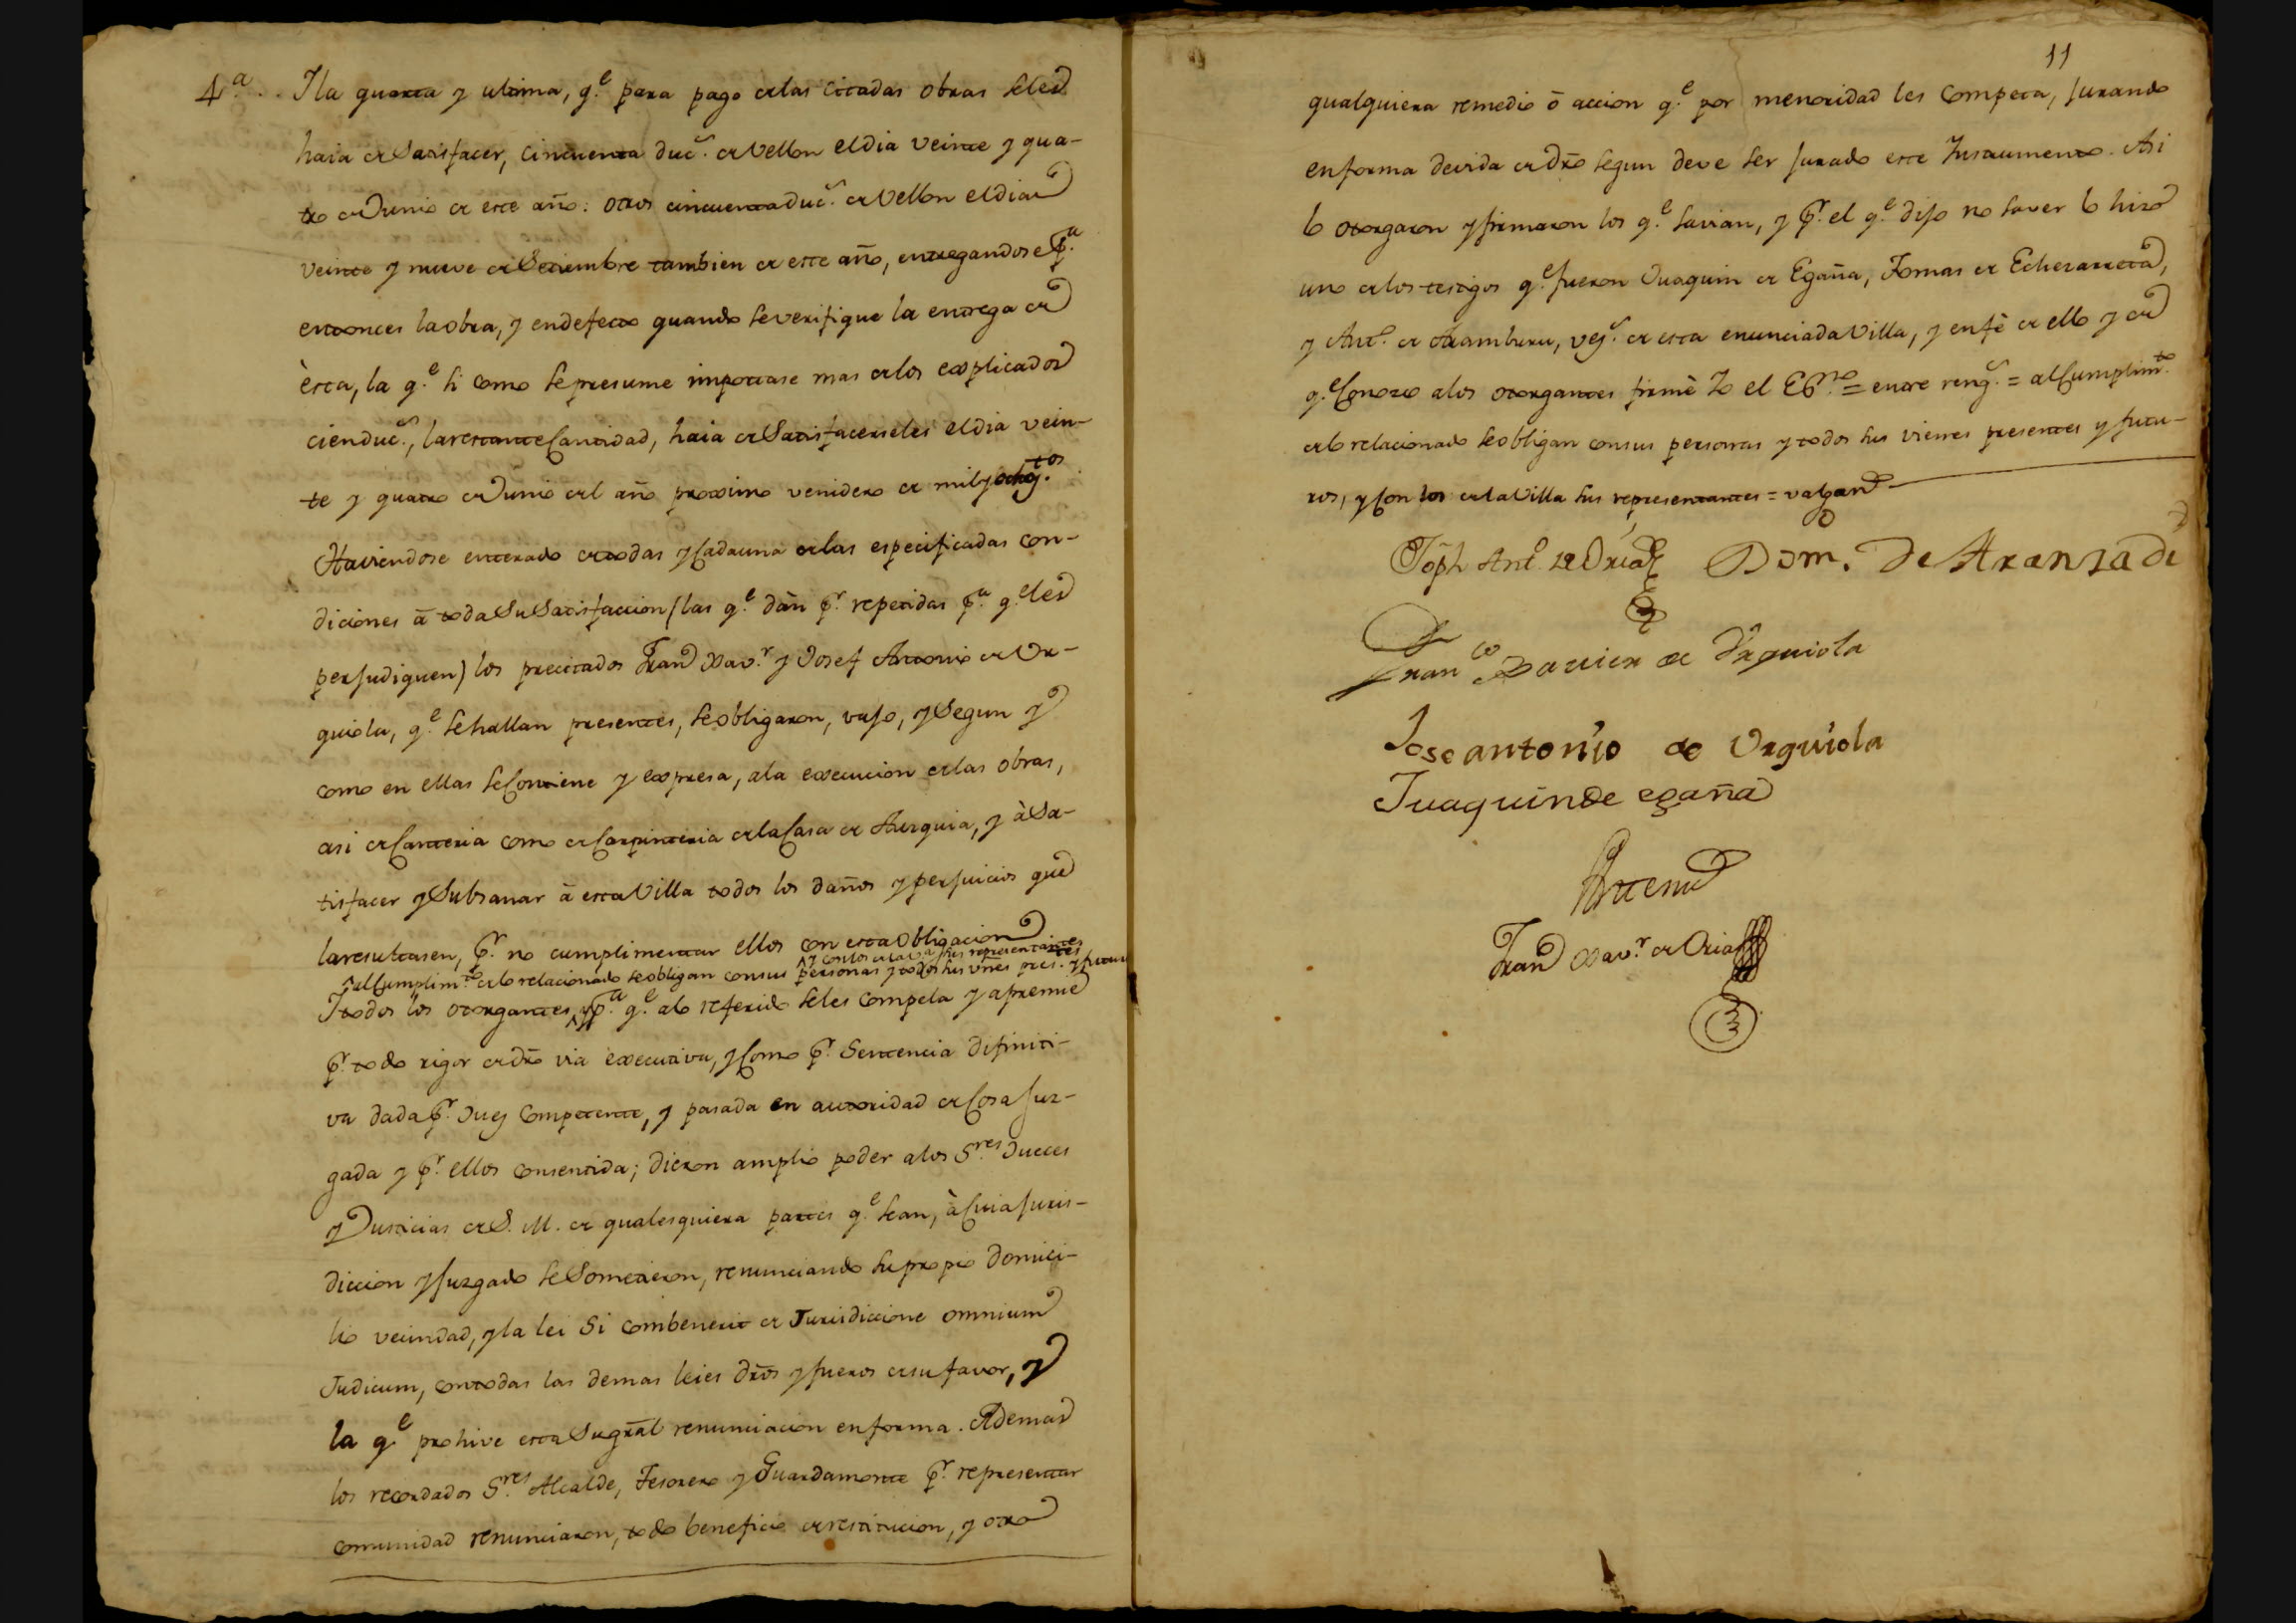 4.ª Y la quarta y ultima, q.e para pago de las citadas obras se les
haia de Satisfacer, cincuenta duc.s de Vellon el dia veinte y qua-
tro de Junio de este año: otros cincuenta duc.s de Vellon el dia
veinte y nueve de Setiembre tambien de este año, entregandose p.ª
entonces la obra, y en defecto quando se verifique la entrega de
èsta, la q.e si como se presume importase mas de los explicados
cien duc.s, la restante Cantidad, haia de Satisfacerseles el dia vein-
te y quatro de Junio del año proximo venidero de mil y ochog.tos
Haviendose enterado de todas y Cada una de las especificadas con-
diciones ā toda Su Satisfaccion (las q.e dàn p.r repetidas p.ª q.e les
perjudiquen) los precitados Fran.co Xav.r y Josef Antonio de Ur-
quiola, q.e se hallan presentes, se obligaron, vajo, y Segun y
como en ellas se Contiene y expresa, a la execucion de las obras,
asi de Canteria como de Carpinteria de la Casa de Aurquia, y à Sa-
tisfacer y Subsanar ā esta Villa todos los daños y perjuicios que
la resultasen, p.r no cumplimentar ellos con esta Obligacion
y con los de la V.ª sus representantes
al Cumplim.to de lo relacionado se obligan con sus personas y todos sus vnes pres.tes y futuros
Y todos los otorgantes, y p.ª q.e a lo referido se les compela y apremie
p.r todo rigor de dr̃o via executiva, y Como p.r Sentencia difiniti-
va dada p.r Juez Competente, y pasada en autoridad de Cosa Juz-
gada y p.r ellos consentida; dieron amplio poder a los S.res Jueces
y Justicias de S. M. de qualesquiera partes q.e sean, à Cuia Juris-
diccion y Juzgado se Sometieron, renunciando su propio Domici-
lio vecindad, y la lei Si combenerit de Jurisdiccione omnium
Judicum, con todas las demas leies dr̃os y fueros de su favor, y
la q.e prohive esta Su gr̃al renunciacion en forma. Ademas
los recordados S.res Alcalde, Tesorero y Guardamonte p.r representar
comunidad renunciaron, todo beneficio de restitucion, y otro
11
qualquiera remedio ō accion q.e por menoridad les Competa, Jurando
en forma devida de dr̃o segun deve ser Jurado este Instrumento. Asi
lo otorgaron y firmaron los q.e savian, y p.r el q.e dijo no saver lo hizo
uno de los testigos q.e fueron Juaquin de Egaña, Tomas de Echezarreta,
y Ant.o de Aramburu, vez.s de esta enunciada Villa, y en fè de ello y de
q.e Conozco a los otorgantes firmè Yo el Ess.no = entre reng.s = al Cumplim.to
de lo relacionado se obligan con sus personas y todos sus vienes presentes y futu-
ros, y Con los de la Villa sus representantes = valgan
Joph Ant.o de Oria Dom. de Aranzadi
Fran.co Xavier de Urquiola
Jose antonio de Urquiola
Juaquin de egaña
Ante mi
Fran.co Xav.r de Oria